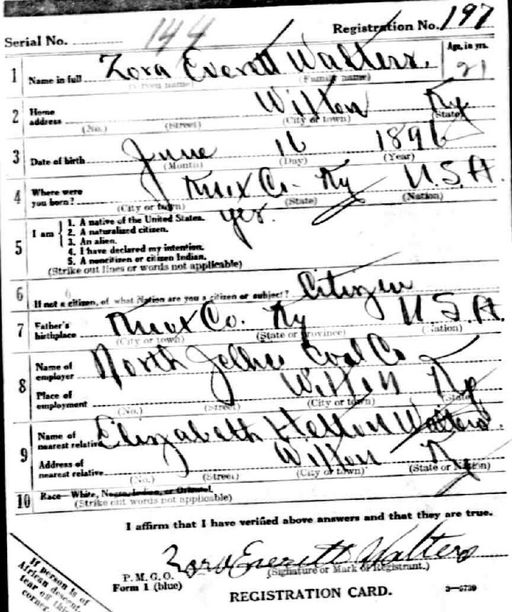 Serial No. 144 Registration No. 197
1 Name in full Zora Everett Walters. Age, in yrs. 21
(Given name) (Family name)
2 Home address Wilton Ky
(No.) (Street) (City or town) (State)
3 Date of birth June 16 1896
(Month) (Day) (Year)
4 Where were you born? Knox Co. Ky U.S.A.
(City or town) (State) (Nation)
5 I am
1. A native of the United States. yes.
2. A naturalized citizen.
3. An alien.
4. I have declared my intention.
5. A noncitizen or citizen Indian.
(Strike out lines or words not applicable)
6 If not a citizen, of what Nation are you a citizen or subject? Citizen
7 Father's birthplace Knox Co. Ky U.S.A.
(City or town) (State or province) (Nation)
8 Name of employer North Jellico Coal Co
Place of employment Wilton Ky
(No.) (Street) (City or town) (State)
9 Name of nearest relative Elizabeth Hellen Walters.
Address of nearest relative Wilton Ky
(No.) (Street) (City or town) (State or Nation)
10 Race—White, Negro, Indian, or Oriental.
(Strike out words not applicable)
I affirm that I have verified above answers and that they are true.
Zora Everett Walters
(Signature or Mark of Registrant.)
P.M.G.O.
Form 1 (blue)
REGISTRATION CARD.
3—5739
If person is of
African descent,
tear off this
corner.